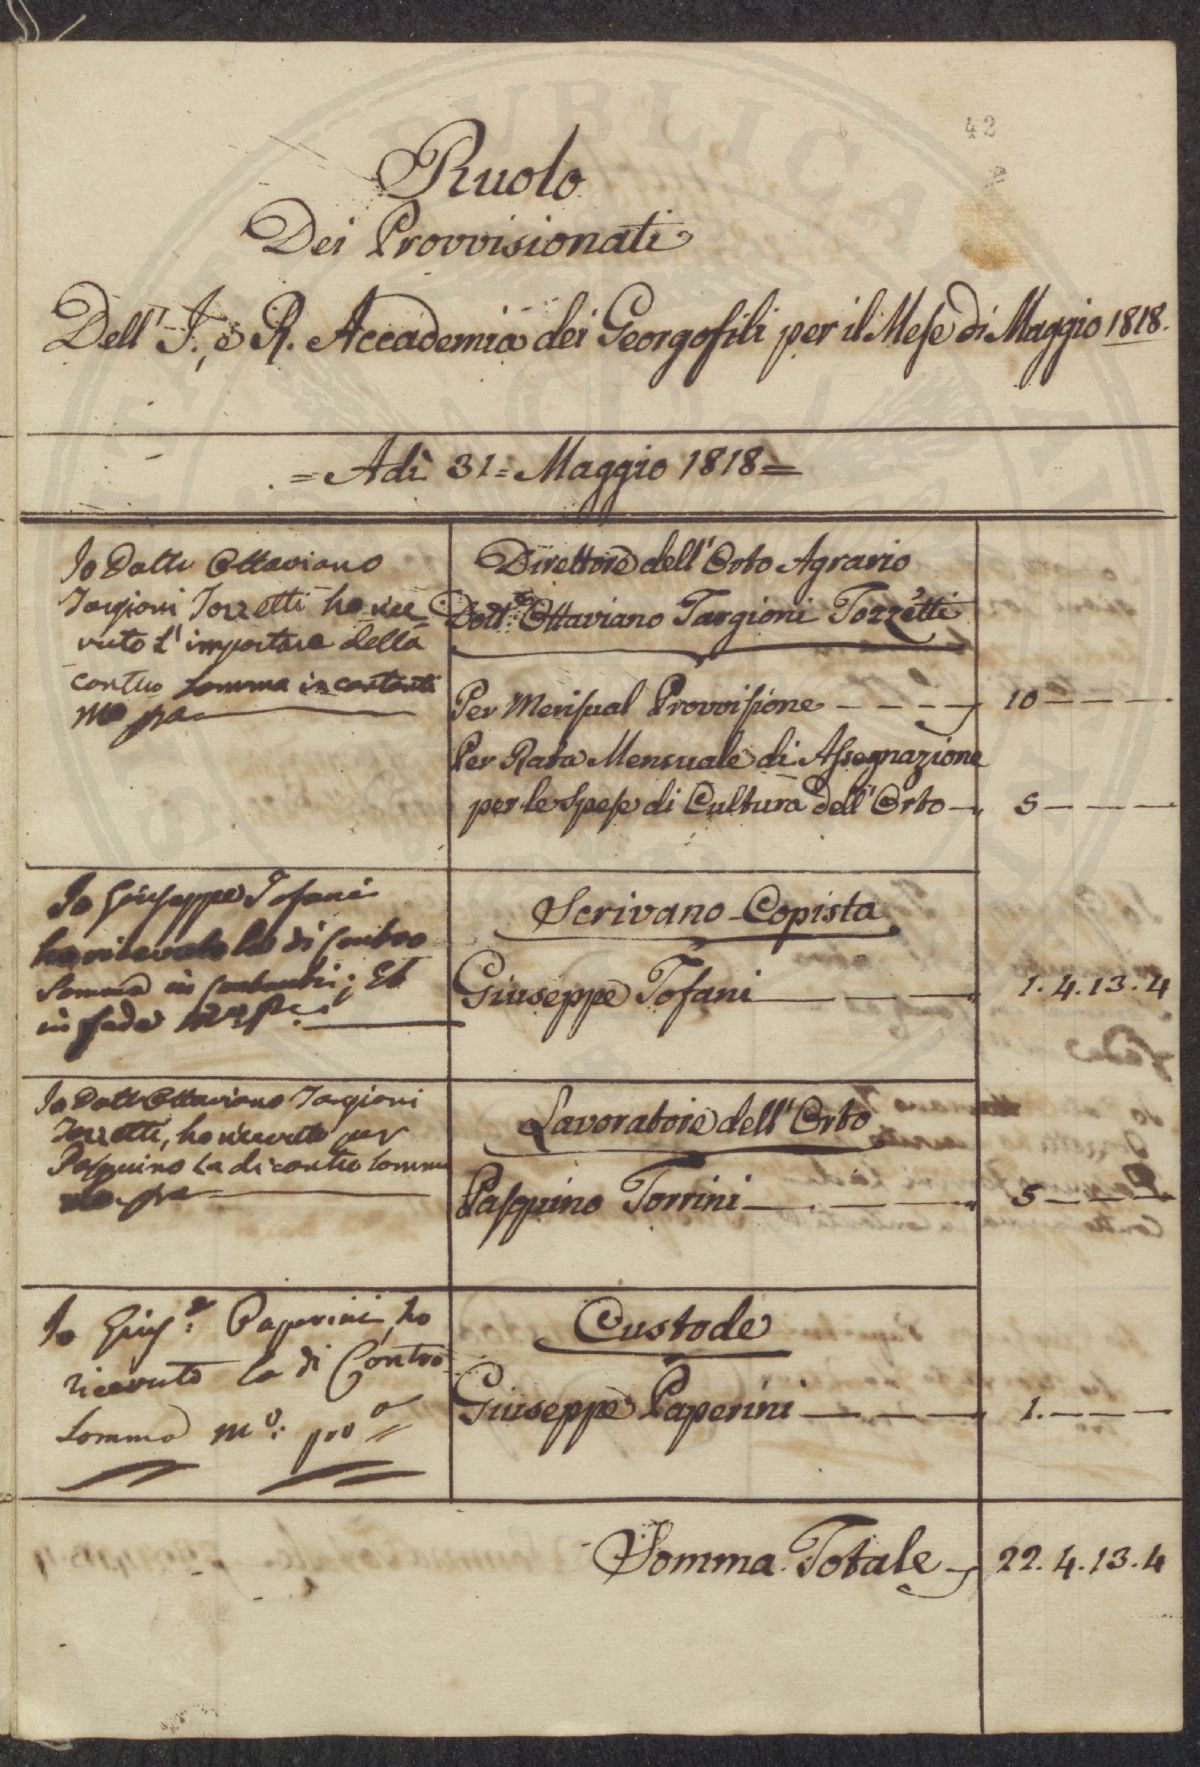 42
Ruolo
Dei Provvisionati
Dell' I. e R. Accademia dei Georgofili per il Mese di Maggio 1818.
= Adì 31 = Maggio 1818 =
Io Dottr Ottaviano
Targioni Tozzetti ho rice=
vuto l' importare della
contro somma in contanti
mo pa
Direttore dell' Orto Agrario
Dott.re Ottaviano Targioni Tozzetti
Per Mensual Provvisione 10
Per Rata Mensuale di Assegnazione
per le Spese di Cultura dell' Orto 5
Io Giuseppe Tofani
ho ricevuto la di Contro
Somma in Contanti; Et
in fede
Scrivano Copista
Giuseppe Tofani 1. 4. 13. 4
Io Dottr Ottaviano Targioni
Tozzetti, ho ricevuto per
Pasquino la di contro somma
mo pa
Lavoratore dell' Orto
Pasquino Torrini 5
Io Gius.e Paperini ho
ricevuto la di Contro
Somma mo: pro a
Custode
Giuseppe Paperini 1.
Somma Totale 22. 4. 13. 4